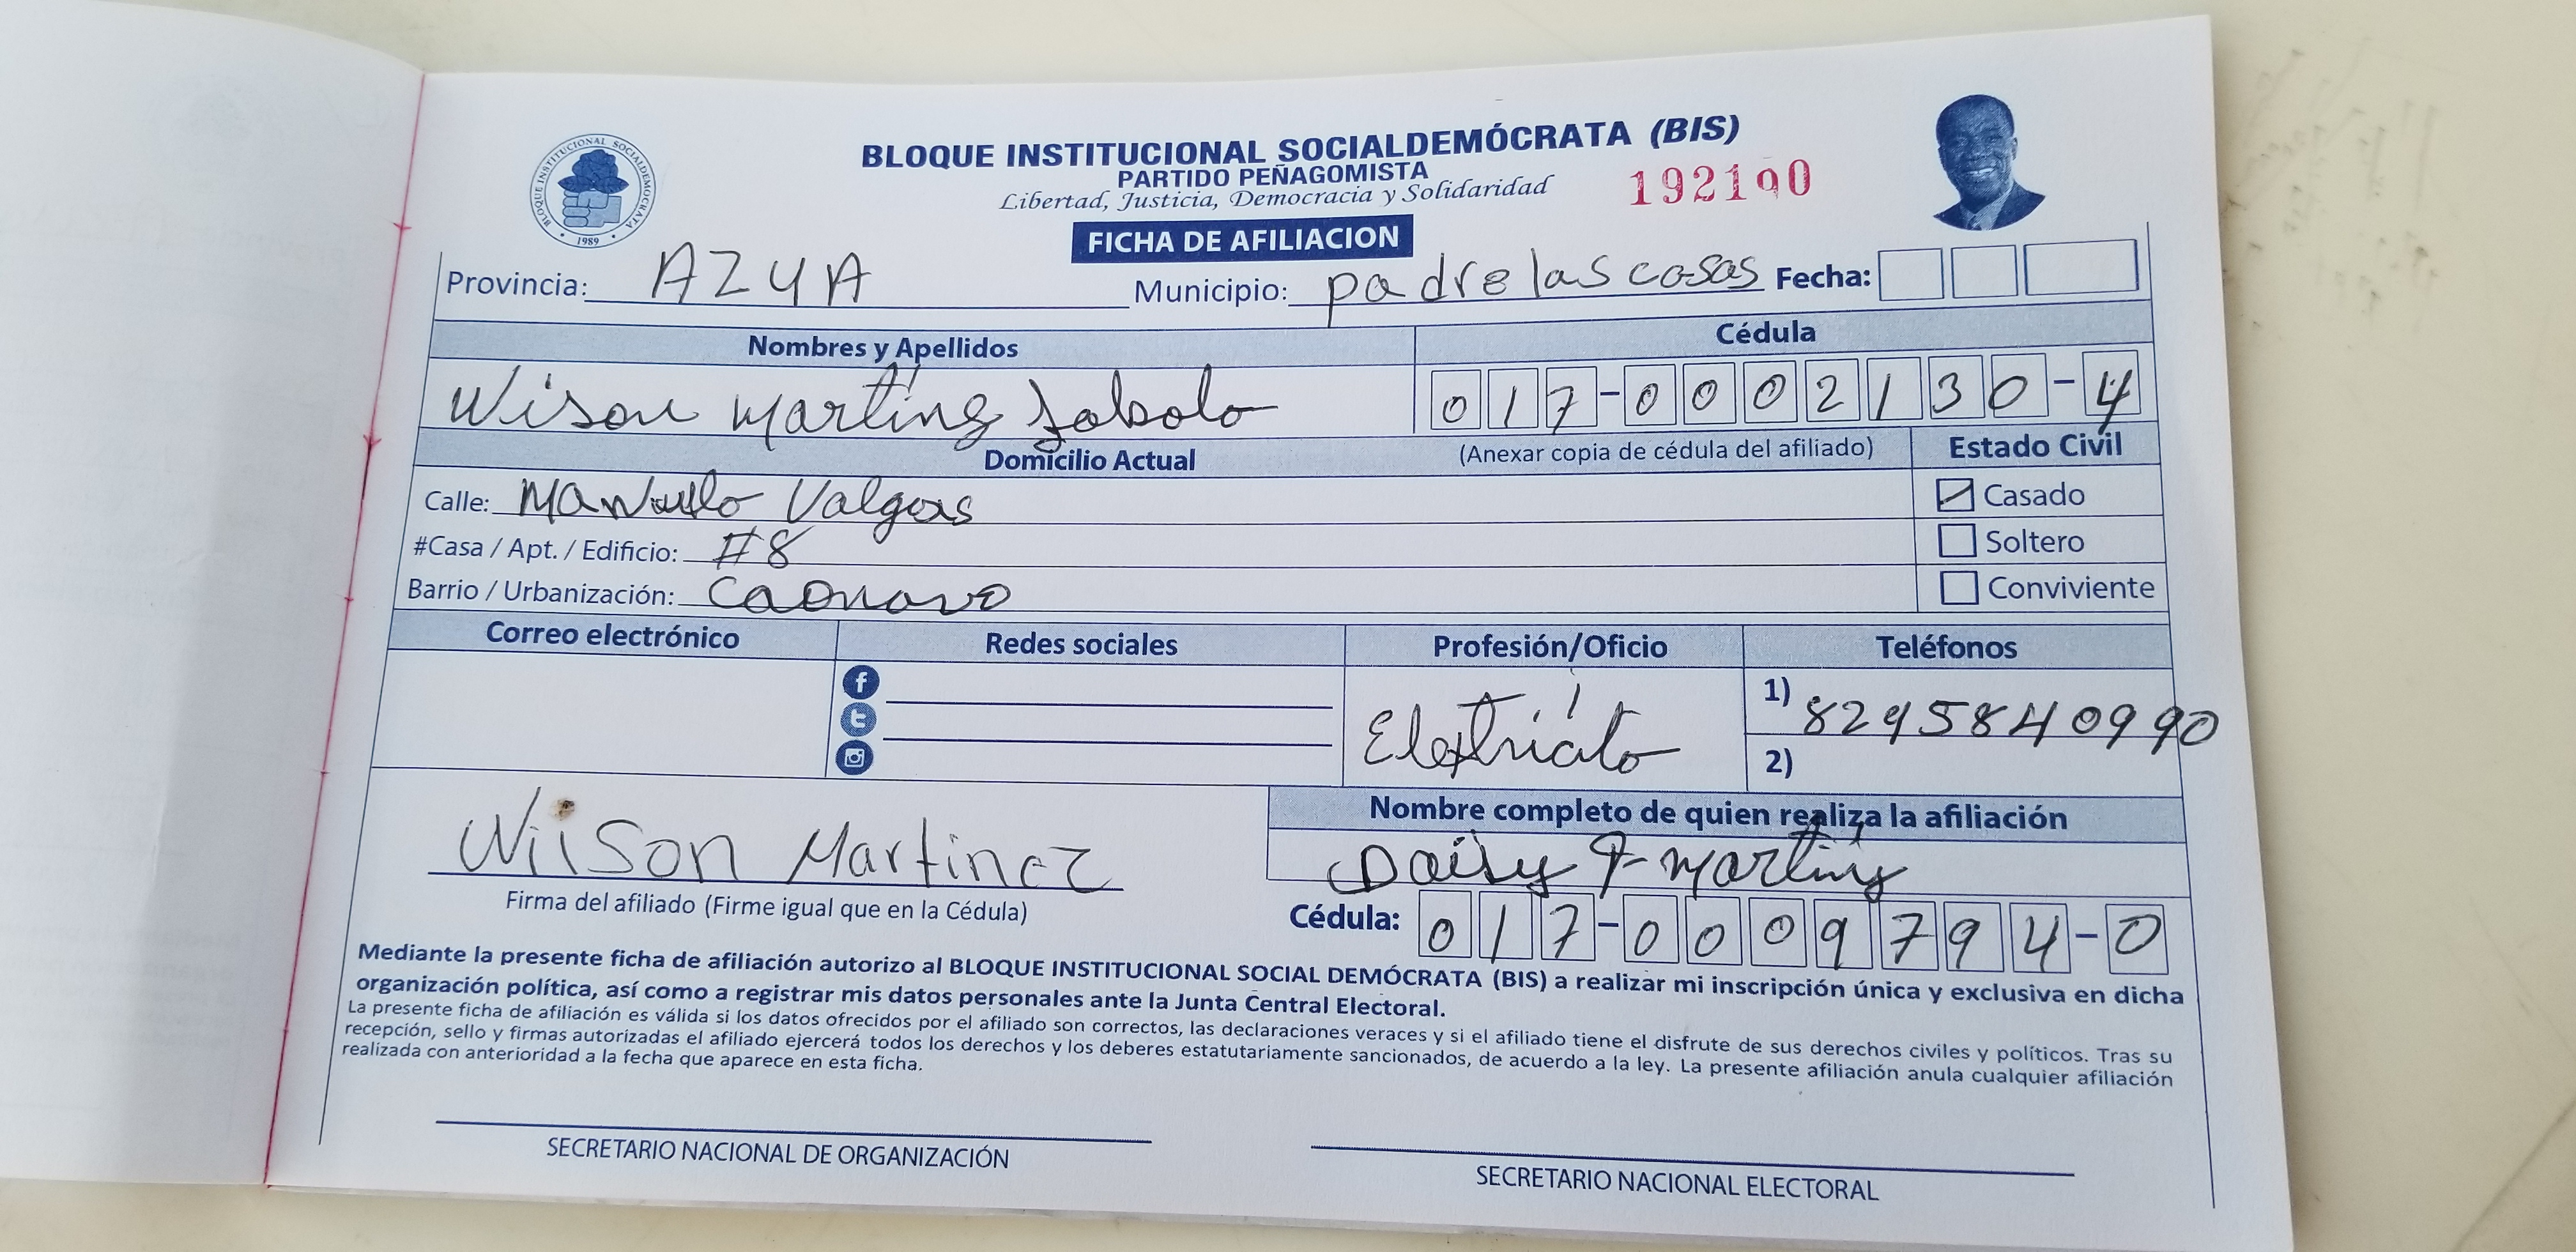 BLOQUE INSTITUCIONAL SOCIALDEMÓCRATA (BIS)
PARTIDO PEÑAGOMISTA
Libertad, Justicia, Democracia y Solidaridad
192190
BLOQUE INSTITUCIONAL SOCIALDEMOCRATA
1989
FICHA DE AFILIACION
Provincia: AZUA Municipio: padre las casas Fecha:
Nombres y Apellidos Cédula
Wison Marting 017-0002130-4
Domicilio Actual (Anexar copia de cédula del afiliado) Estado Civil
Calle: Valgas Casado
#Casa / Apt. / Edificio: #8 Soltero
Barrio / Urbanización: Conviviente
Correo electrónico Redes sociales Profesión/Oficio Teléfonos
1) 8295840990
2)
Nombre completo de quien realiza la afiliación
Wilson Martinez Daisy Marting
Firma del afiliado (Firme igual que en la Cédula) Cédula: 017-0009794-0
Mediante la presente ficha de afiliación autorizo al BLOQUE INSTITUCIONAL SOCIAL DEMÓCRATA (BIS) a realizar mi inscripción única y exclusiva en dicha
organización política, así como a registrar mis datos personales ante la Junta Central Electoral.
La presente ficha de afiliación es válida si los datos ofrecidos por el afiliado son correctos, las declaraciones veraces y si el afiliado tiene el disfrute de sus derechos civiles y políticos. Tras su
recepción, sello y firmas autorizadas el afiliado ejercerá todos los derechos y los deberes estatutariamente sancionados, de acuerdo a la ley. La presente afiliación anula cualquier afiliación
realizada con anterioridad a la fecha que aparece en esta ficha.
SECRETARIO NACIONAL DE ORGANIZACIÓN SECRETARIO NACIONAL ELECTORAL